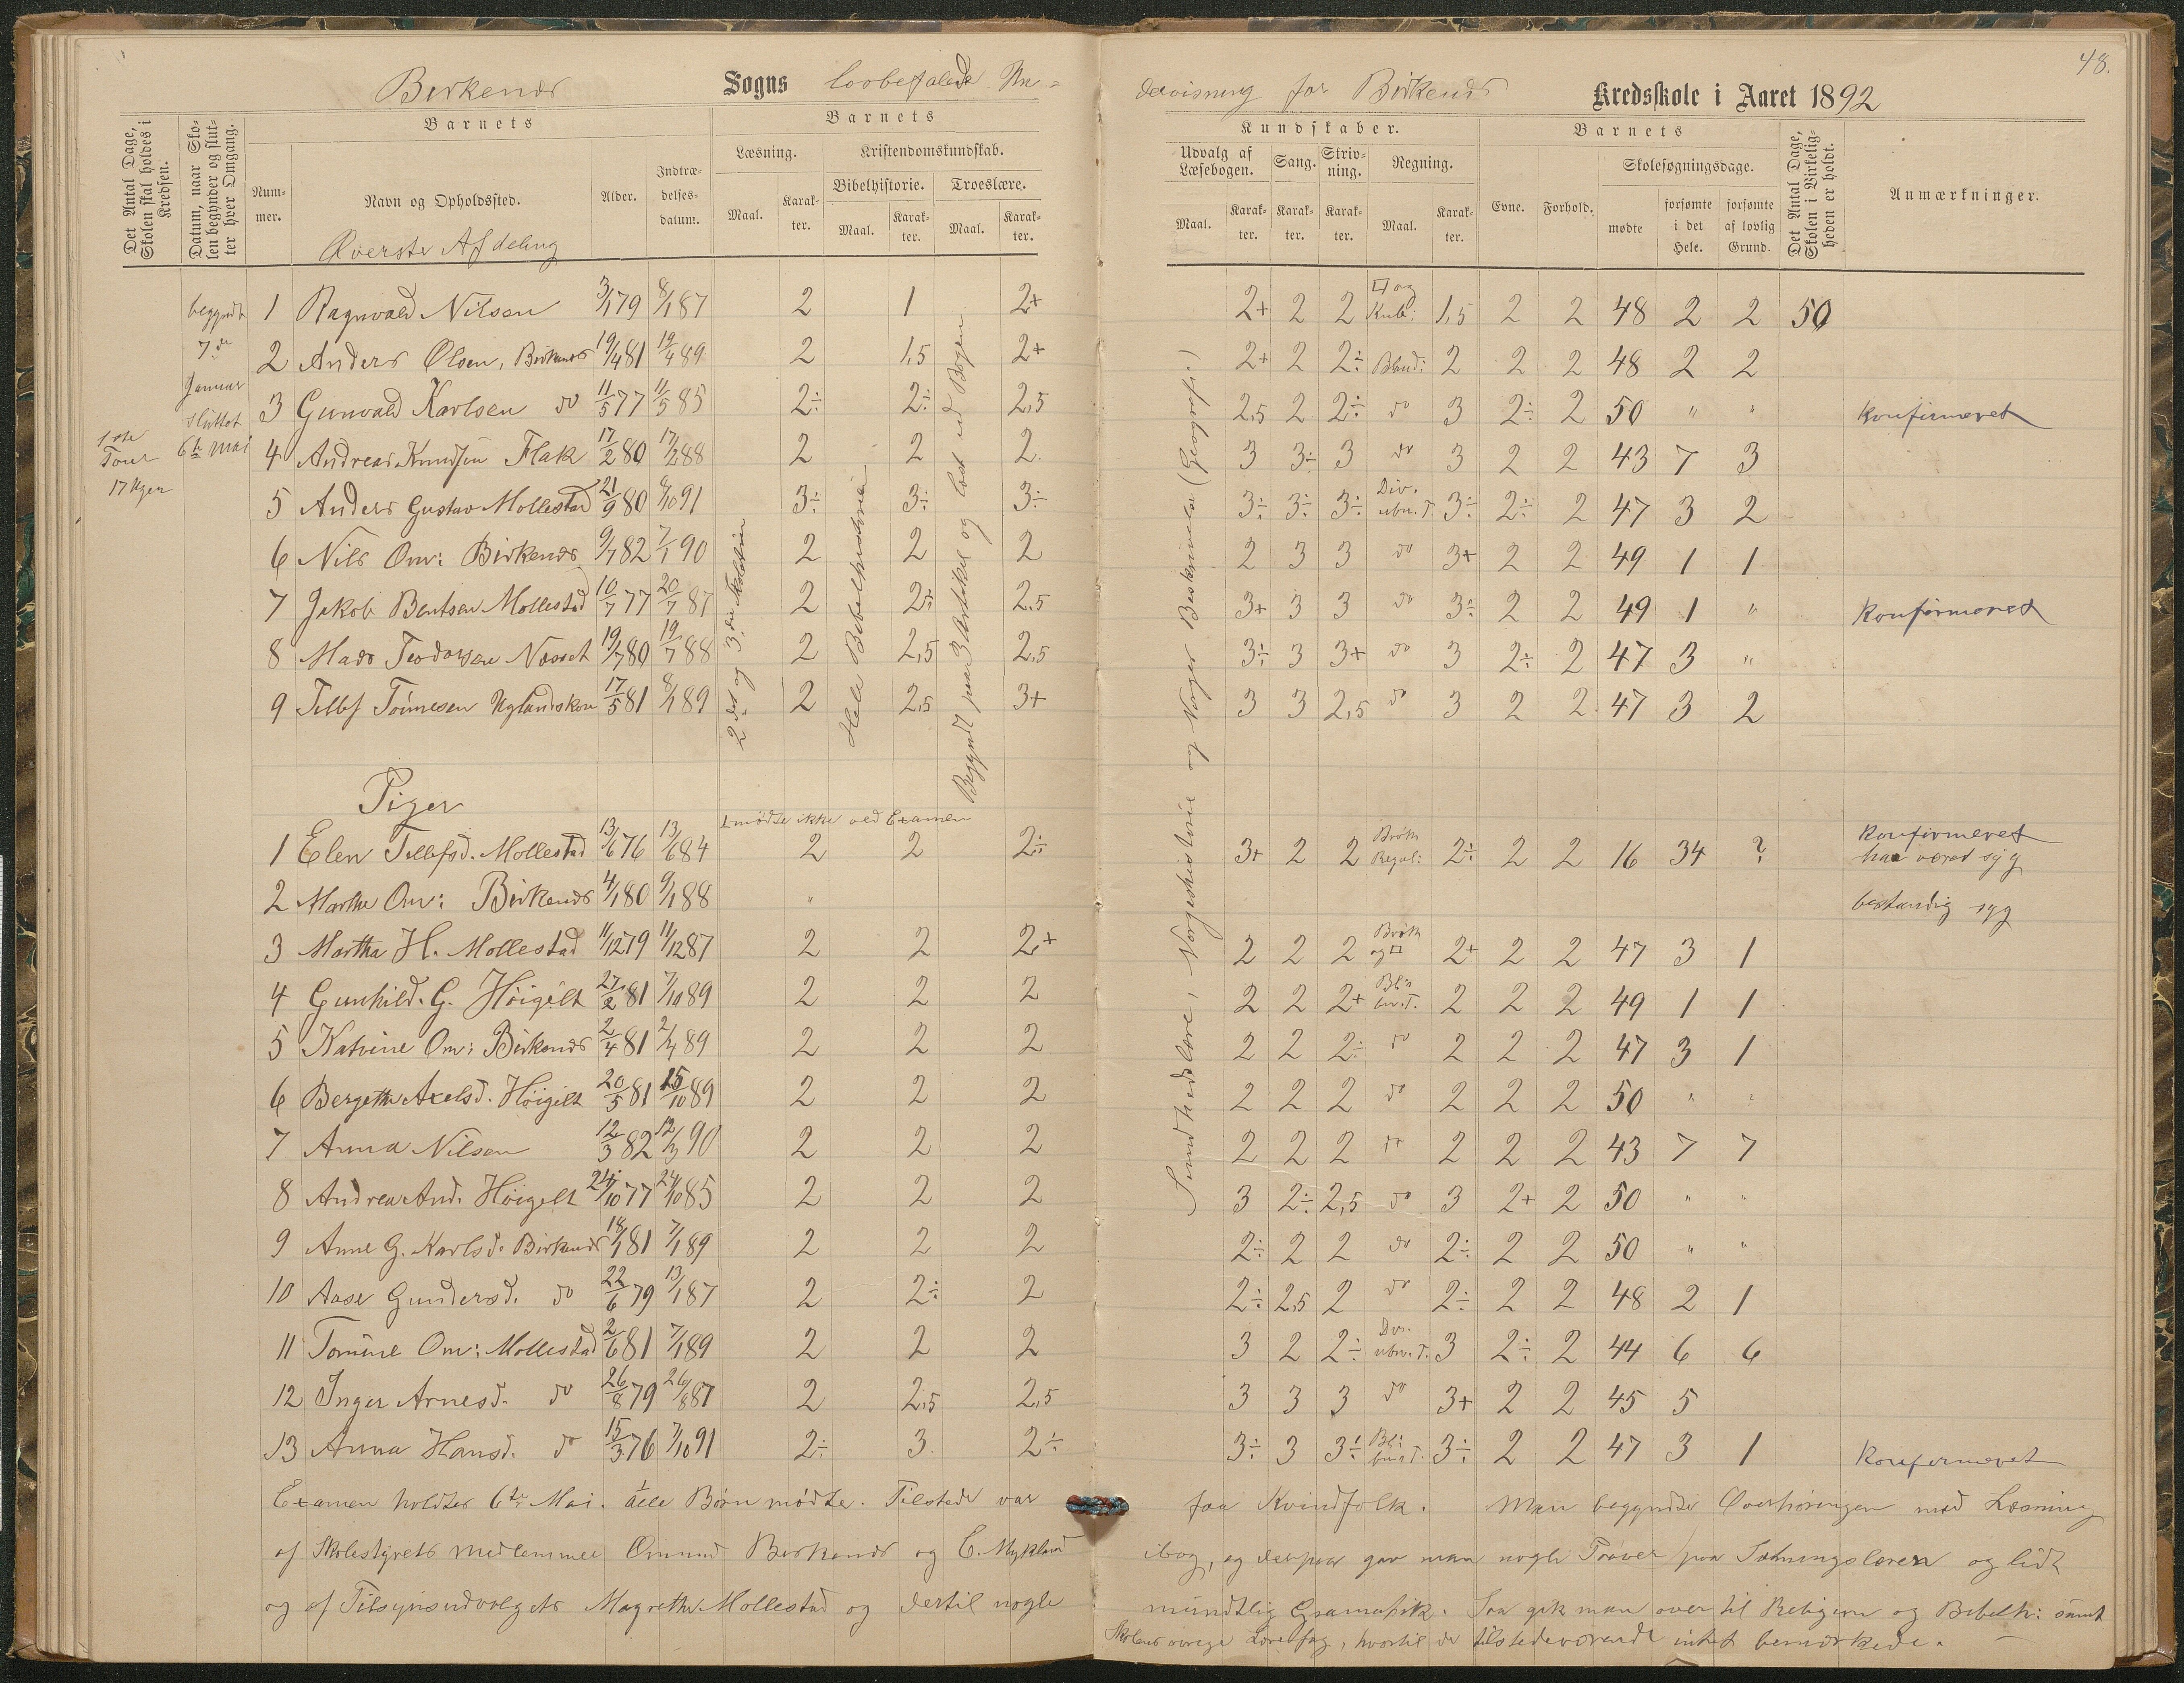 48.
Birkenes Sogns lovbefalede Un=
dervisning for Birkenes Kredsskole i Aaret 1892
Det Antal Dage, Skolen skal holdes i Kredsen.
Datum, naar Skolen begynder og slutter hver Omgang.
Barnets
Nummer.
Navn og Opholdssted.
Alder.
Indtrædelsesdatum.
Barnets
Læsning.
Maal.
Karakter.
Kristendomskundskab.
Bibelhistorie.
Maal.
Karakter.
Troeslære.
Maal.
Karakter.
Kundskaber.
Udvalg af Læsebogen.
Maal.
Karakter.
Sang.
Karakter.
Skrivning.
Karakter.
Regning.
Maal.
Karakter.
Barnets
Evne.
Forhold.
Skolesøgningsdage.
mødte
forsømte i det Hele.
forsømte af lovlig Grund.
Det Antal Dage, Skolen i Virkeligheden er holdt.
Anmærkninger.
Øverste Afdeling
begyndt
7de
Januar
sluttet
6te Mai
1ste
Tour
17 Uger
2det og 3die
Hele Bibelhistorien
Begyndt paa 3 Artikel og læst ud Bogen
Sundhedslære, Norgeshistorie og Norges Beskrivelse (Geografi)
1 Ragnvald Nilsen 3/1 79 8/1 87 2 1 2+ 2+ 2 2 □ og Kub: 1,5 2 2 48 2 2 50
2 Anders Olsen, Birkenes 19/4 81 19/4 89 2 1,5 2+ 2+ 2 2÷ Bland: 2 2 2 48 2 2
3 Gunvald Karlsen do 11/5 77 11/5 85 2÷ 2÷ 2,5 2,5 2 2÷ do 3 2÷ 2 50 " " Konfirmeret
4 Andreas Knudsen Flak 17/2 80 17/2 88 2 2 2 3 3÷ 3 do 3 2 2 43 7 3
5 Anders Gustav Mollestad 21/9 80 /10 91 3÷ 3÷ 3÷ 3÷ 3÷ 3÷ Div. ubn. T. 3÷ 2÷ 2 47 3 2
6 Nils Om: Birkenes 9/7 82 7/1 90 2 2 2 2 3 3 do 3+ 2 2 49 1 1
7 Jakob Bentsen Mollestad 10/7 77 20/7 87 2 2÷ 2,5 3+ 3 3 do 3÷ 2 2 49 1 " Konfirmeret
8 Mads Teodorsen Næsset 19/7 80 19/7 88 2 2,5 2,5 3÷ 3 3+ do 3 2÷ 2 47 3 "
9 Tellef Tønnesen Uglandskon 17/5 81 8/1 89 2 2,5 3+ 3 3 2,5 do 3 2 2 47 3 2
Piger
mødte ikke ved Examen
1 Elen Tellefsd. Mollestad 13/6 76 13/6 84 2 2 2÷ 3+ 2 2 Brøk Regul: 2÷ 2 2 16 34 ? Konfirmeret
har været syg
2 Marthe Om: Birkenes 4/1 80 9/1 88 " bestandig syg
3 Martha H. Mollestad 11/12 79 11/12 87 2 2 2+ 2 2 2 Brøk og □ 2+ 2 2 47 3 1
4 Gunhild. G. Høigilt 27/2 81 7/10 89 2 2 2 2 2 2+ 2 2 2 49 1 1
5 Katrine Om: Birkenes 2/4 81 2/4 89 2 2 2 2 2 2÷ do 2 2 2 47 3 1
6 Bergethe Axelsd. Høigilt 20/5 81 15/10 89 2 2 2 2 2 2 do 2 2 2 50 " "
7 Anna Nilsen 12/3 82 12/3 90 2 2 2 2 2 2 do 2 2 2 43 7 7
8 Andrea And. Høigilt 24/10 77 24/10 85 2 2 2 3 2÷ 2,5 do 3 2+ 2 50 " "
9 Anne G. Karlsd. Birkenes 18/1 81 7/1 89 2 2 2 2÷ 2 2 do 2÷ 2 2 50 " "
10 Aase Gundersd. do 22/6 79 13/1 87 2 2÷ 2 2÷ 2,5 2 do 2÷ 2 2 48 2 1
11 Tomine Om: Mollestad 2/6 81 7/1 89 2 2 2 3 2 2÷ Div. ubn. T. 3 2÷ 2 44 6 6
12 Inger Arnesd. do 26/8 79 26/8 87 2 2,5 2,5 3 3 3 do 3+ 2 2 45 5
13 Anna Hansd. do 15/3 76 7/10 91 2÷ 3 2÷ 3÷ 3 3÷ 3÷ 2 2 47 3 1 Konfirmeret
Examen holdtes 6te Mai. Alle Børn mødte. Tilstede var
af Skolestyrets medlemmer Omund Birkenes og C. Mykland
og af Tilsynsudvalgets Magrethe Mollestad og dertil nogle
faa Kvindfolk. Man begyndte Overhøringen med Læsning
ibog, og derpaa gav man nogle Prøver paa Sætningslæren og lidt
mundtlig Gramatik. Saa gik man over til Religion og Bibelh: samt
Skolens øvrige Lærefag, hvortil de tilstedeværende intet bemærkede.